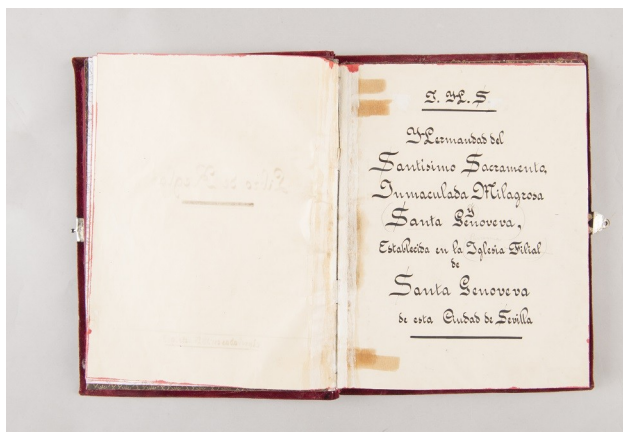 J. H. S
Hermandad del
Santísimo Sacramento,
Inmaculada Milagrosa
y
Santa Genoveva,
Establecida en la Iglesia Filial
de
Santa Genoveva
de esta Ciudad de Sevilla